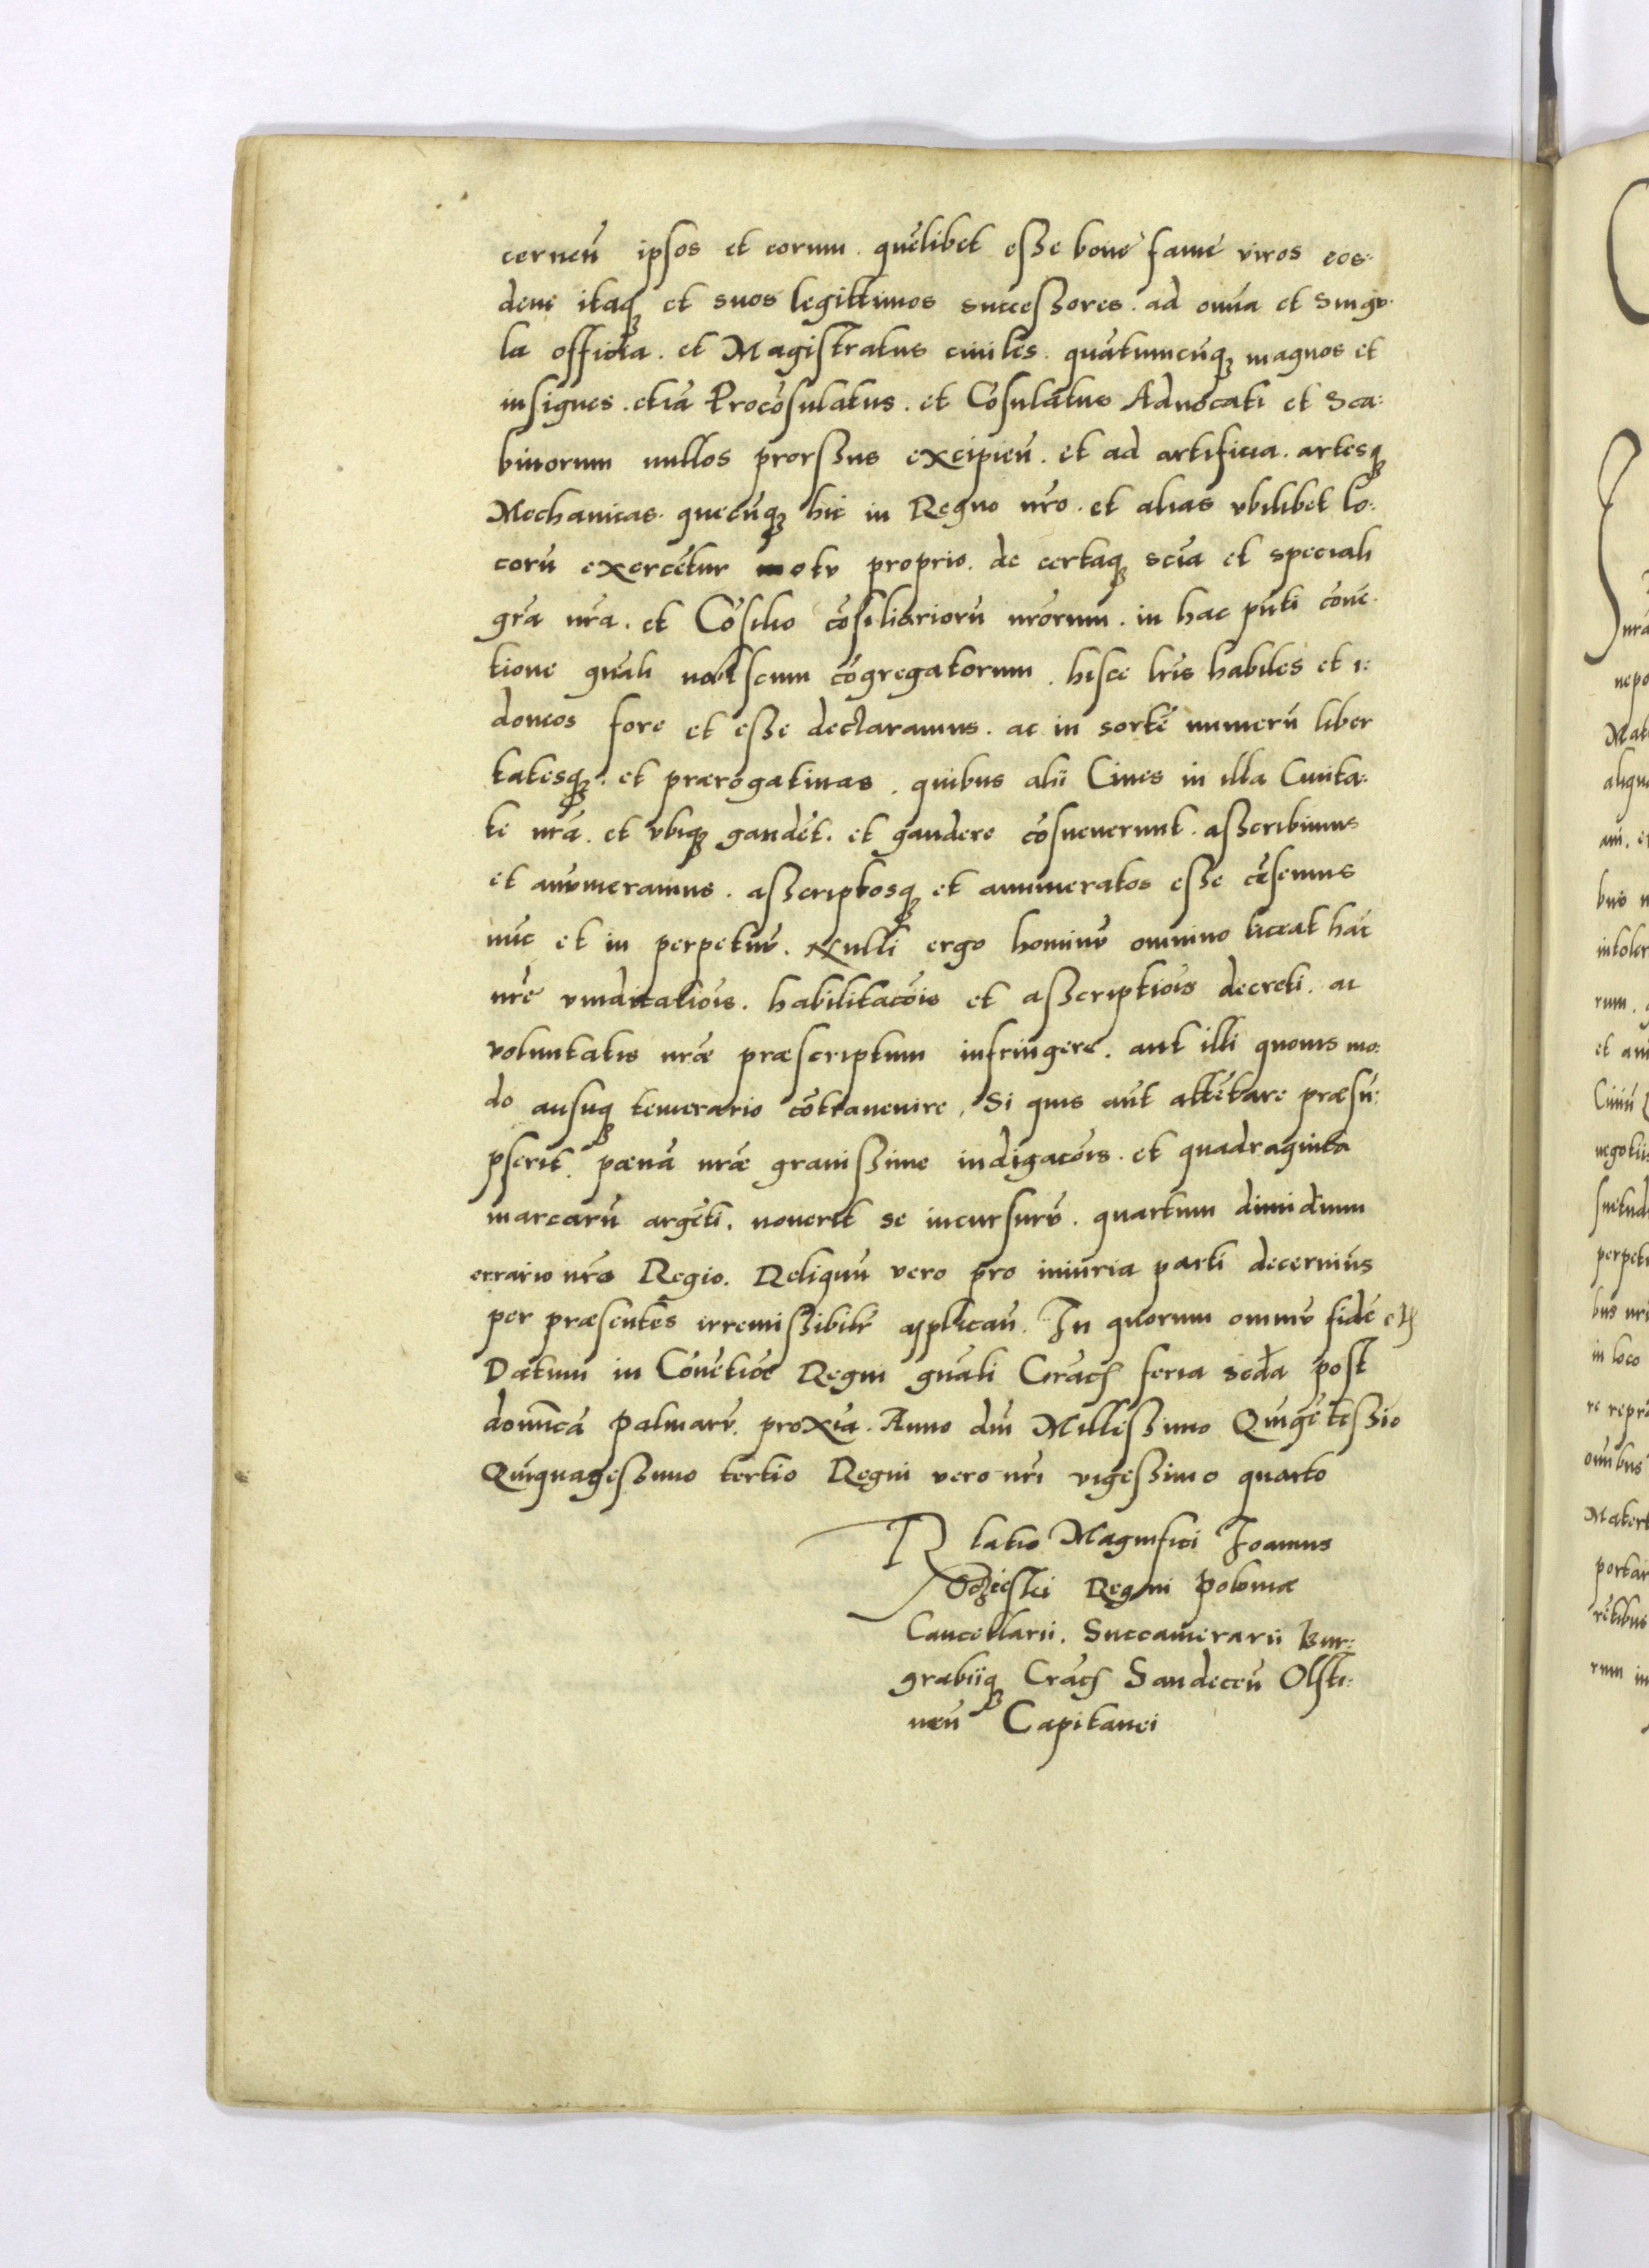 cerneñ ipsos et eorum. quēlibet esse bone fame viros eos-
dem itaqꝫ et suos legittimos successores. ad omīa et Singu-
la officia. et Magistratus ciuiles. quātumcūqꝫ magnos et
insignes. etiā Procōsulatus. et Cōsulatus Aduocati et Sca:
binorum nullos prorsus excipieñ. et ad artificia. artesqꝫ
Mechanicas. quecūqꝫ hic in Regno nr̃o. et alias vbilibet lo:
corū exercētur motu proprio. de certaqꝫ scīa et speciali
gr̃a nr̃a. et Cōsilio cōsiliariorū nr̃orum. in hac pñti cōuē-
tione gñali nobiscum cōgregatorum. hisce lr̃is habiles et i:
doneos fore et esse declaramus. ac in sortē numerū liber
tatesqꝫ. et prærogatiuas. quibus alii Ciues in illa Ciuita:
te nr̃a. et vbiqꝫ gaudēt. et gaudere cōsueuerunt. asscribimus
et anūmeramus. asscriptosqꝫ et annumeratos esse cēsemus
nūc et in perpetuū. Nulli ergo hominū omnino liceat hāc
nr̃e vinditatiōis. habilitacōis et asscriptiōis decreti. ac
voluntatis nr̃æ præscriptum infringere. aut illi quouis mo:
do ausuqꝫ temerario cōtrauenire. Si quis aūt attētare præsū:
pserit. pœnā nr̃æ grauissime indigacōis. et quadraginta
marcarū argēti. nouerit se incursurū. quartum dimidium
errario nr̃o Regio. Reliquū vero pro iniuria parti decernimꝰ
per præsentes irremissibilr̃ applicañ. In quorum omniū fidē etc
Datum in Cōuētiōe Regni gñali Cracꝭ feria scd̃a post
domīcā Palmarū. proxīa. Anno dñi Millessimo Quīgētessīo
Quīquagessimo tertio Regni vero nr̃i vigessimo quarto
Rlatio Magnifici Joannis
Oczieski Regni Poloniæ
Cancellarii. Succamerarii Bur:
grabiiqꝫ Cracꝭ Sandeceñ Olsti:
neñ Capitanei